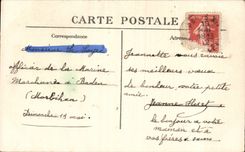 CARTE POSTALE
Correspondance
Monsieur
Officier de la Marine
Marchande à Baden
(Morbihan)
Dimanche 13 mai.
Jeannette vous envoie
ses meilleurs vœux
de bonheur, votre petite
amie.
Jeanne
le bonjour à votre
maman et à
vos frères &